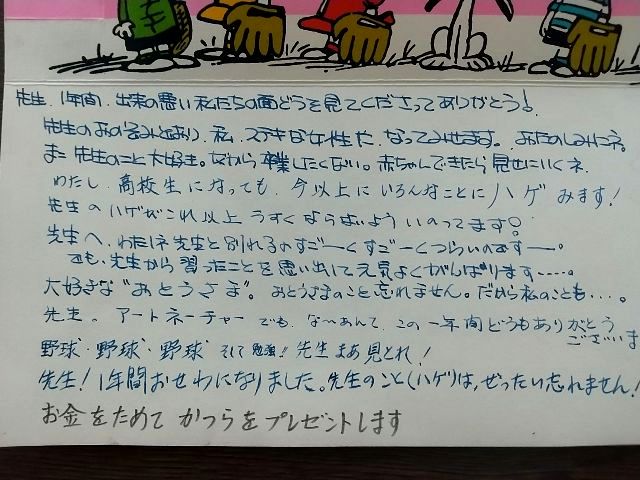 先生、1年間、出来の悪い私たちの面どうを見てくださってありがとう!
先生のおのぞみどおり、私、ステキな女性に、なってみせます。おたのしみにネ。
また先生のこと大好き。だから卒業したくない。赤ちゃんできたら見せにいくネ
わたし、高校生になっても、今以上にいろんなことにハゲみます!
先生のハゲがこれ以上うすくならないよういのってます。
先生へ、わたしネ先生と別れるのすご〜くすご〜くつらいのです—。
でも、先生から習ったことを思い出して元気よくがんばります……。
大好きな“おとうさま”。おとうさまのこと忘れません。だから私のことも…。
先生。アートネーチャーでも、な〜あんて、この一年間どうもありがとう
ございま
野球・野球・野球 そして勉強!先生まあ見とれ!
先生!1年間おせわになりました。先生のこと(ハゲ)は、ぜったい忘れません!
お金をためてかつらをプレゼントします